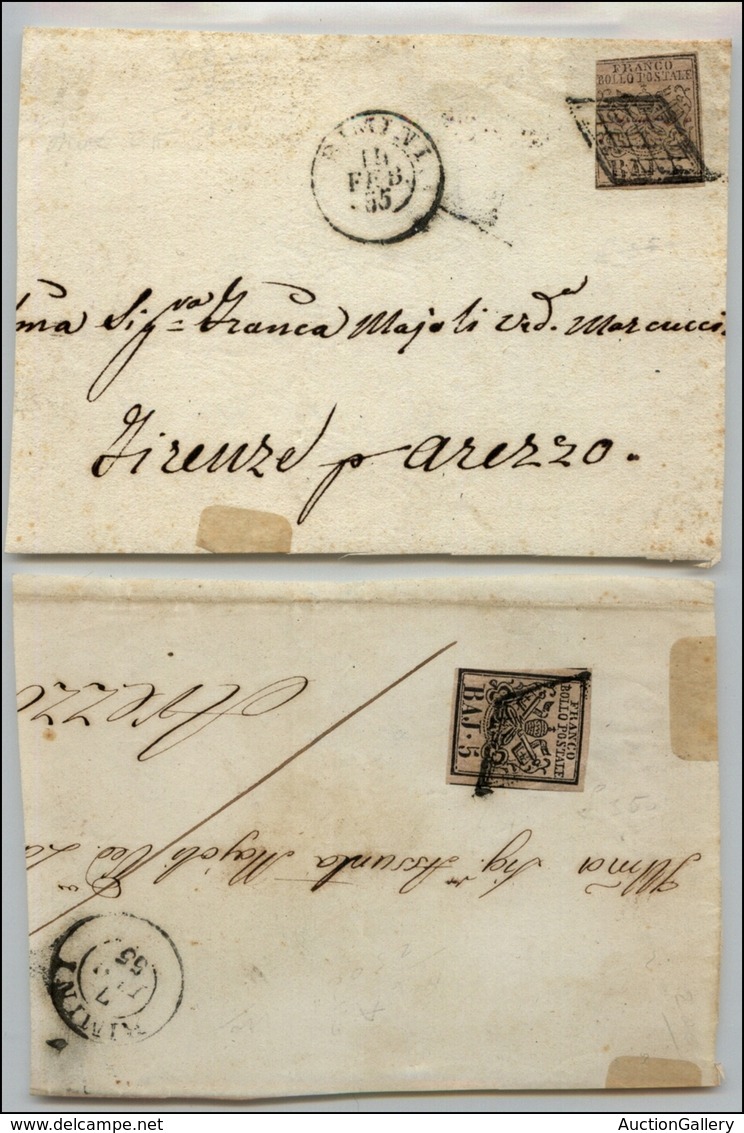 FRANCO
BOLLO POSTALE
BAJ.
RIMINI
FEB.
55
Sig.ra Franca Majoli Ved.a Marcucci
Firenze p Arezzo.
Arezzo
FRANCO
BOLLO POSTALE
BAJ. 5
Illma Sig.ra Assunta Majoli Ved.
RIMINI
7
55
AuctionGallery